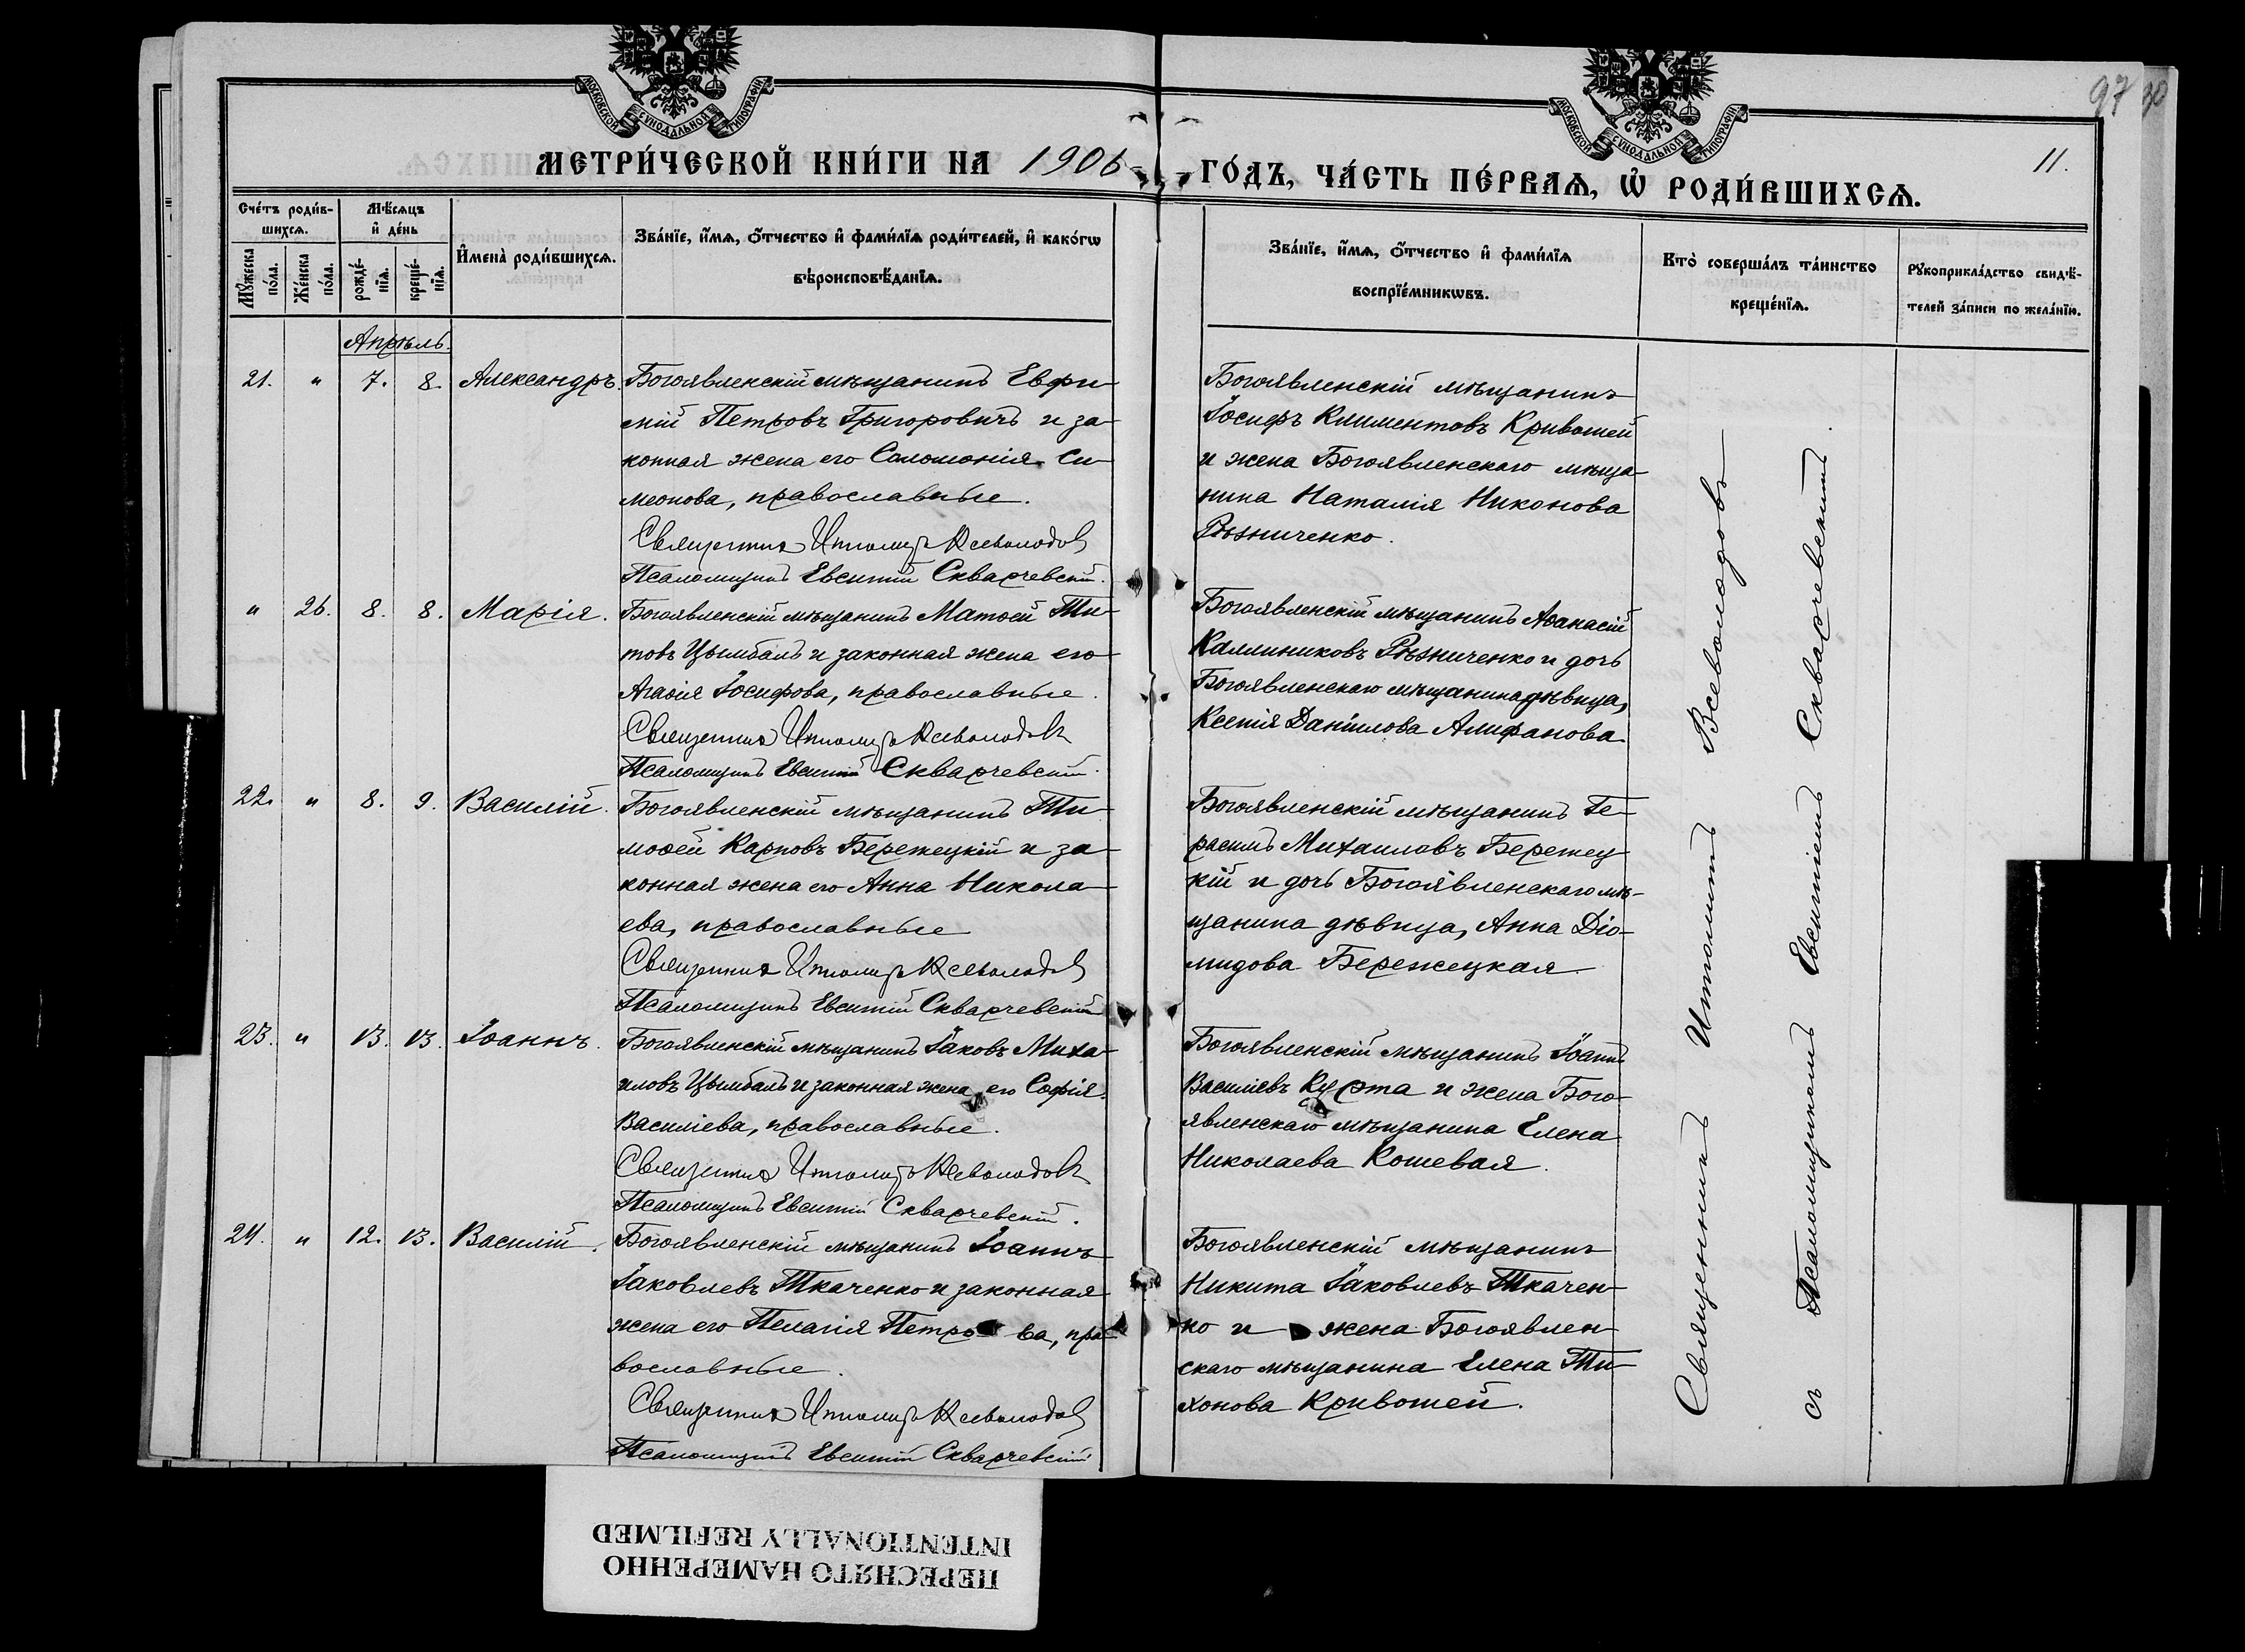 МОСКОВСКОЙ СѴНОДАЛЬНОЙ ТИПОГРАФІИ
МОСКОВСКОЙ СѴНОДАЛЬНОЙ ТИПОГРАФІИ
97
30
11.
МЕТРИ́ЧЕСКОЙ КНИ́ГИ НА 1906 ГО́ДЪ, ЧА́СТЬ ПЕ́РВАѦ, Ѽ РОДИ́ВШИХСѦ.
Сче́тъ роди́в-
шихсѧ.
Мѣ́сѧцъ
и҆ де́нь
Мꙋ́жеска по́ла.
Же́нска по́ла.
рожде́-
нїѧ.
креще́-
нїѧ.
И҆мена̀ роди́вшихсѧ.
Зва́нїе, и҆́мѧ, ѻ҆́тчество и҆ фами́лїѧ роди́телей, и҆ како́гѡ
вѣроисповѣ́данїѧ.
Зва́нїе, и҆́мѧ, ѻ҆́тчество и҆ фами́лїѧ
воспрїе́мникѡвъ.
Кто̀ соверша́лъ та́инство
креще́нїѧ.
Рꙋкоприкла́дство свидѣ́-
телей за́писи по жела́нїю.
Апрѣль.
21. " 7. 8. Александръ.
Богоявленскій мѣщанинъ Евфи-
мій Петровъ Григоровичъ и за-
конная жена его Соломонія Си-
меонова, православные.
Священникъ Ипполитъ Всеволодовъ
Псаломщикъ Евсигній Скварчевскій.
Богоявленскій мѣщанинъ
Іосифъ Климентовъ Кривошей
и жена Богоявленскаго мѣща-
нина Наталія Никонова
Рѣзниченко.
" 26. 8. 8. Марія.
Богоявленскій мѣщанинъ Матѳей Ти-
товъ Цымбалъ и законная жена его
Агаѳія Іосифова, православные.
Священникъ Ипполитъ Всеволодовъ
Псаломщикъ Евсигній Скварчевскій.
Богоявленскій мѣщанинъ Аѳанасій
Каллиниковъ Рѣзниченко и дочь
Богоявленскаго мѣщанина дѣвица,
Ксенія Даніилова Алифанова.
22. " 8. 9. Василій.
Богоявленскій мѣщанинъ Ти-
моѳей Карповъ Бережецкій и за-
конная жена его Анна Никола-
ева, православные
Священникъ Ипполитъ Всеволодовъ
Псаломщикъ Евсигній Скварчевскій
Богоявленскій мѣщанинъ Ге-
расимъ Михаиловъ Бережец-
кій и дочь Богоявленскаго мѣ-
щанина дѣвица, Анна Діо-
мидова Бережецкая.
23. " 13. 13. Іоаннъ.
Богоявленскій мѣщанинъ Іаковъ Миха-
иловъ Цымбалъ и законная жена его Софія
Василіева, православные.
Священникъ Ипполитъ Всеволодовъ
Псаломщикъ Евсигній Скварчевскій.
Богоявленскій мѣщанинъ Іоаннъ
Василіевъ Курта и жена Бого-
явленскаго мѣщанина Елена
Николаева Кошевая.
24. " 12. 13. Василій.
Богоявленскій мѣщанинъ Іоаннъ
Іаковлевъ Ткаченко и законная
жена его Пелагія Петрова, пра-
вославные.
Священникъ Ипполитъ Всеволодовъ
Псаломщикъ Евсигній Скварчевскій
Богоявленскій мѣщанинъ
Никита Іаковлевъ Ткачен-
ко и жена Богоявлен-
скаго мѣщанина Елена Ти-
хонова Кривошей.
Священникъ Ипполитъ Всеволодовъ
съ Псаломщикомъ Евсигніемъ Скварчевскимъ.
ПЕРЕСНЯТО НАМЕРЕННО
INTENTIONALLY REFILMED